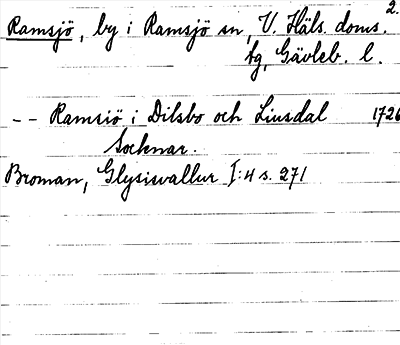 2.
Ramsjö, by i Ramsjö sn, V. Häls. doms.
sg, Gävleb. l.
-- Ramsiö i Dilsbo och Liusdal 1726
Socknar.
Broman, Glysisvallur I:4 s. 271